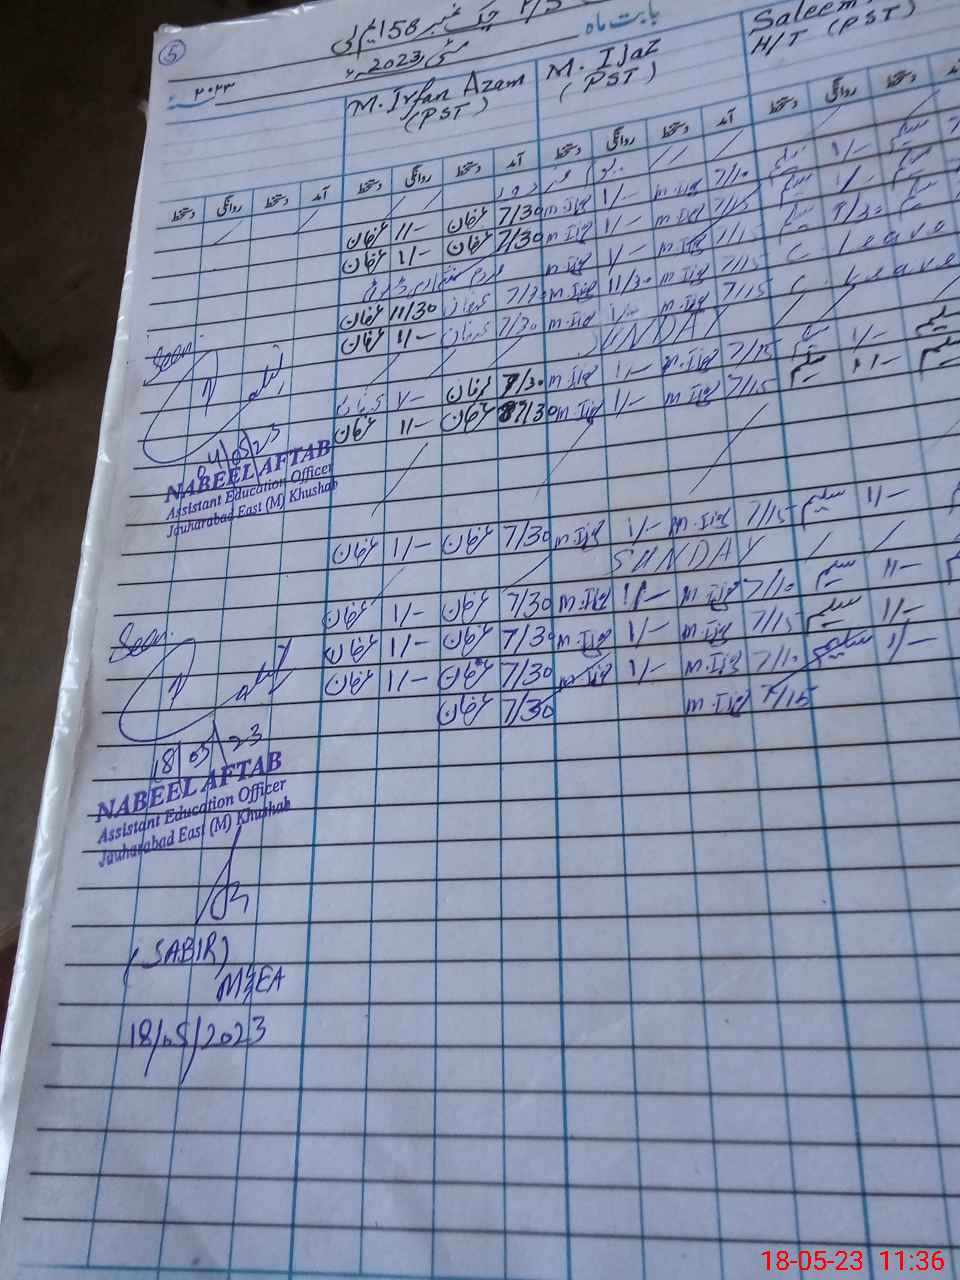 5
چک نمبر 158 ایم ایل
بابت ماہ
مئی 2023
۲۰۲۳
M. Irfan Azam (PST)
M. Ijaz (PST)
Saleem H/T (PST)
دستخط روانگی دستخط آمد دستخط روانگی دستخط آمد دستخط روانگی دستخط آمد دستخط روانگی دستخط
عرفان 11- عرفان 7/30 M.Ijaz 1/- M.Ijaz 7/10 سلیم 1/-
عرفان 1/- عرفان 7/30 M.Ijaz 1/- M.Ijaz 7/15 سلیم 1/-
M.Ijaz 1/- M.Ijaz 7/15 سلیم
عرفان 11/30 M.Ijaz 11/30 M.Ijaz 7/15 C. Leave
عرفان 1/- 7/30 M.Ijaz 1/- M.Ijaz 7/15 C. Leave
SUNDAY
Seen.
عرفان 7/30 M.Ijaz 1/- M.Ijaz 7/15 1/- سلیم
عرفان 11- عرفان 7/30 M.Ijaz 1/- M.Ijaz 7/15 سلیم 11- سلیم
NABEEL AFTAB
Assistant Education Officer
Jauharabad East (M) Khushab
عرفان 1/- عرفان 7/30 M.Ijaz 1/- M.Ijaz 7/15 سلیم 1/-
SUNDAY
عرفان 1/- عرفان 7/30 M.Ijaz 1/- M.Ijaz 7/10 سلیم 11-
Seen.
عرفان 1/- عرفان 7/30 M.Ijaz 1/- M.Ijaz 7/15 سلیم 1/-
عرفان 1/- عرفان 7/30 M.Ijaz 1/- M.Ijaz 7/10 سلیم 1/-
عرفان 7/30 M.Ijaz 7/15
18/05/23
NABEEL AFTAB
Assistant Education Officer
Jauharabad East (M) Khushab
(SABIR)
MEA
18/05/2023
18-05-23 11:36